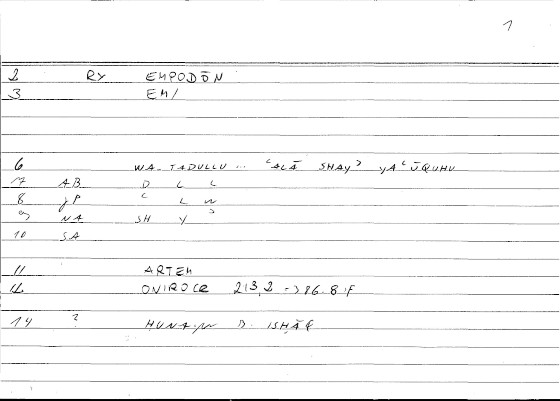 1
2 RY EMPODŌN
3 EM/
6 WA-TADULLU ... ʿALĀ SHAYʾ YAʿŪQUHU
7 AB D L L
8 JP ʿ L W
9 NA SH Y ʾ
10 SA
11 ARTEM
12 ONIROCR 213,2 -> 86.8 F
14 ? HUNAIN B. ISHĀQ